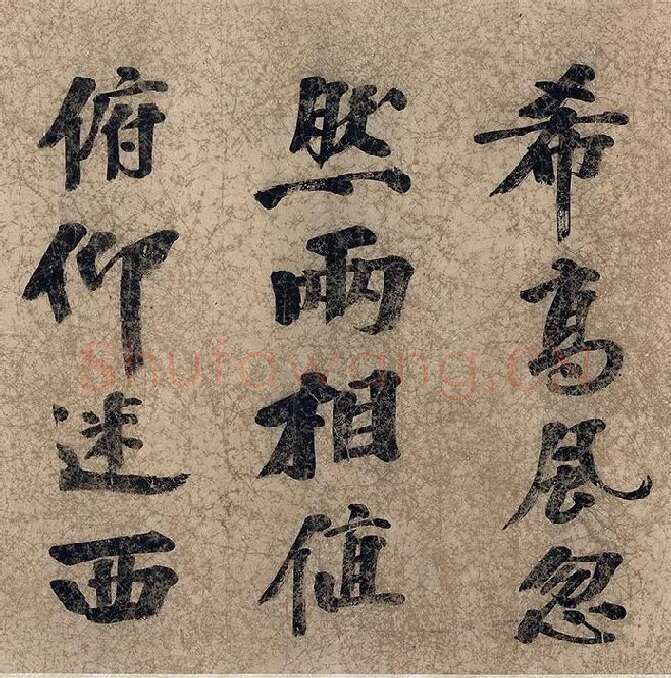 希高風忽
然兩相值
俯仰迷西
shufawang.cn